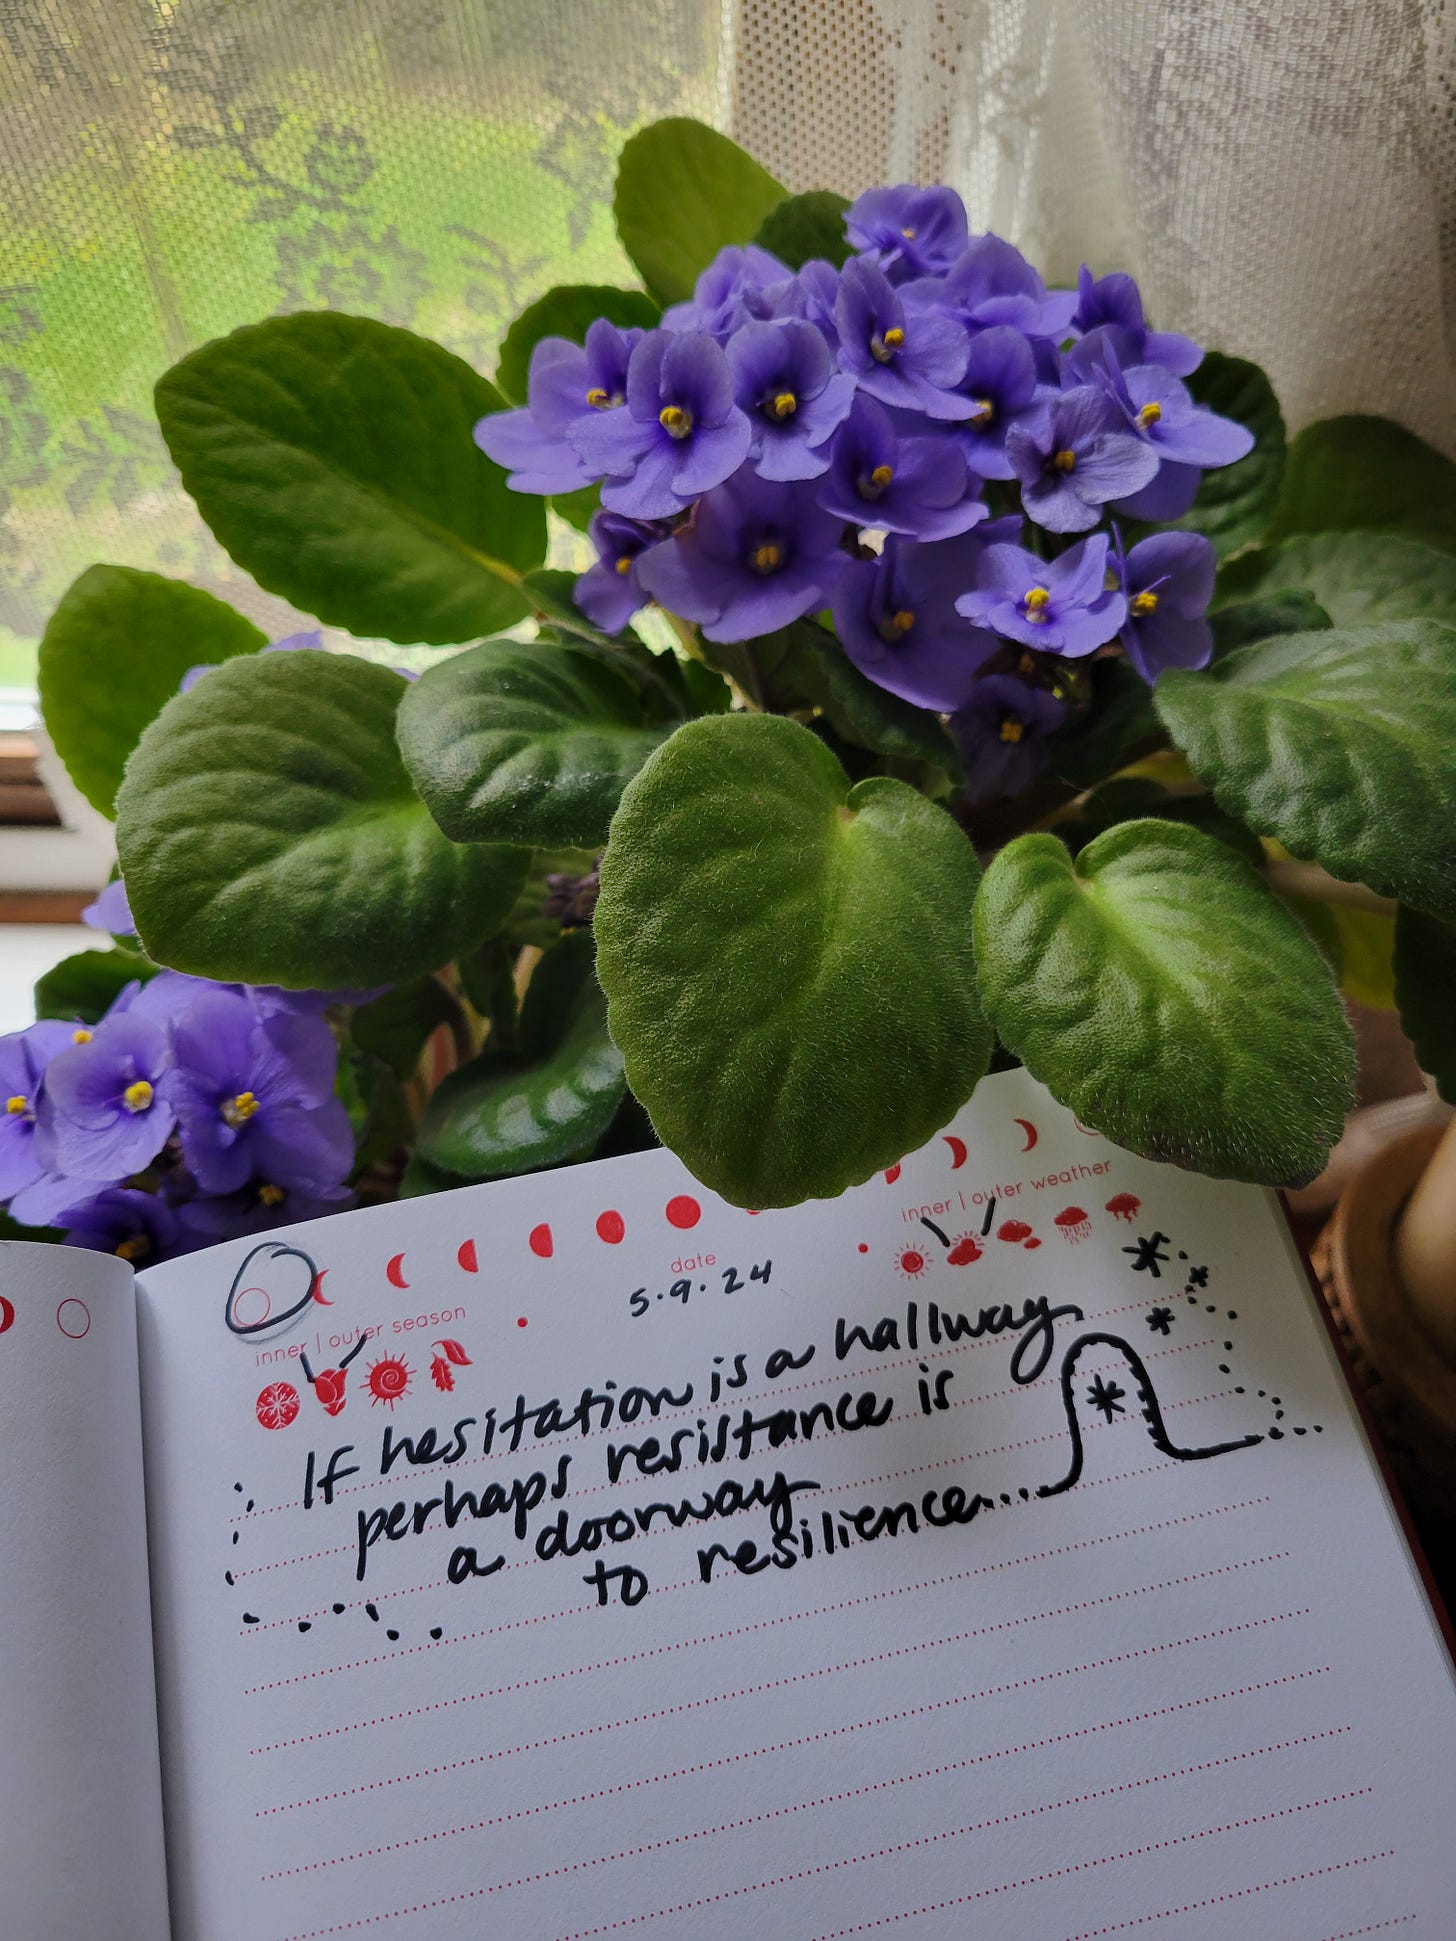 inner | outer weather
date
5.9.24
inner | outer season
If hesitation is a hallway,
perhaps resistance is
a doorway
to resilience....